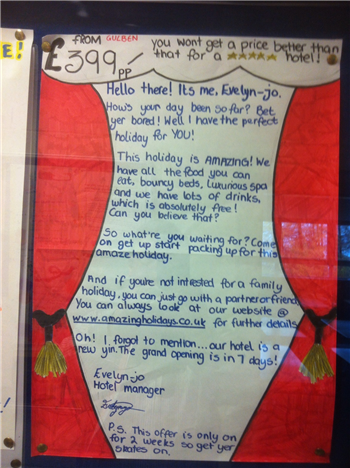 E!
FROM GULBEN
£399/-
PP
you wont get a price better than
that for a ★★★★★ hotel!
Hello there! Its me, Evelyn-jo.
How's your day been so far? Bet
yer bored! Well I have the perfect
holiday for YOU!
This holiday is AMAZING! We
have all the food you can
eat, bouncy beds, luxurious spa
and we have lots of drinks,
which is absolutely free!
Can you believe that?
So what're you waiting for? Come
on get up start packing up for this
amaze holiday.
And if you're not interested for a family
holiday, you can just go with a partner or friend
You can always look at our website @
www.amazingholidays.co.uk for further details
Oh! I forgot to mention...our hotel is a
new yin. The grand opening is in 7 days!
Evelyn-jo
Hotel manager
P.S. This offer is only on
for 2 weeks so get yer
skates on.